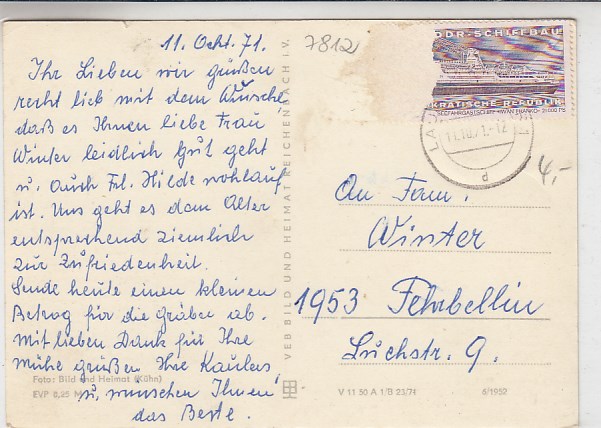 11. Okt. 71.
7812
Ihr Lieben wir grüßen
recht lieb mit dem Wunsche
daß es Ihnen liebe Frau
Winter leidlich gut geht
u. auch Frl. Hilde wohlauf
ist. Uns geht es dem Alter
entsprechend ziemlich
zur Zufriedenheit.
Sende heute einen kleinen
Betrag für die gräben ab.
Mit lieben Dank für Ihre
Mühe grüßen Ihre Kaulers
u. wünschen Ihnen
das Beste.
Foto: Bild und Heimat (Kühn)
EVP 0,25 M
VEB BILD UND HEIMAT REICHENBACH i.V.
DDR-SCHIFFBAU
KRATISCHE REPUBLIK
11.10.71-12
d
4,-
An Fam.
Winter
1953 Fehrbellin
Luchstr. 9.
V 11 50 A 1/B 23/71
6/1952